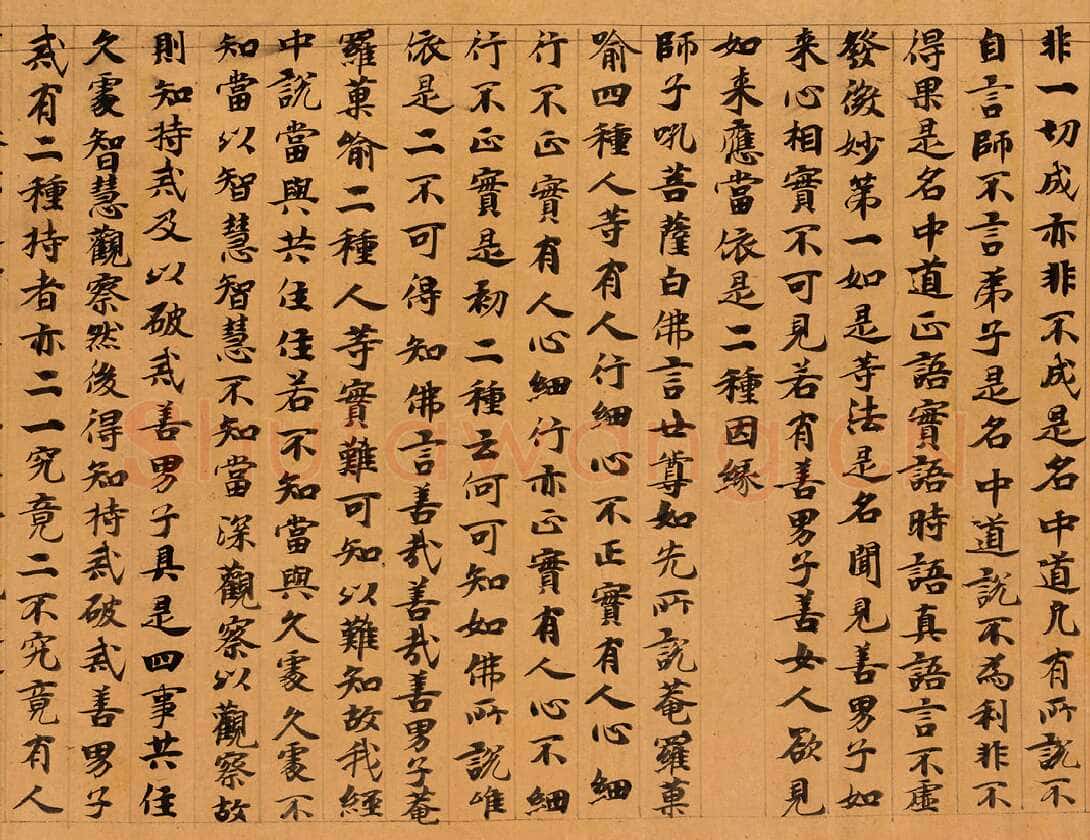 非一切成亦非不成是名中道凡有所說不
自言師不言弟子是名中道說不為利非不
得果是名中道正語實語時語真語言不虛
發微妙第一如是等法是名聞見善男子如
来心相實不可見若有善男子善女人欲見
如来應當依是二種因緣
師子吼菩薩白佛言世尊如先所說菴羅菓
喻四種人等有人行細心不正實有人心細
行不正實有人心細行亦正實有人心不細
行不正實是初二種云何可知如佛所說唯
依是二不可得知佛言善哉善哉善男子菴
羅菓喻二種人等實難可知以難知故我經
中說當與共住住若不知當與久處久處不
知當以智慧智慧不知當深觀察以觀察故
則知持戒及以破戒善男子具是四事共住
久處智慧觀察然後得知持戒破戒善男子
戒有二種持者亦二一究竟二不究竟有人
Shufawang.cn